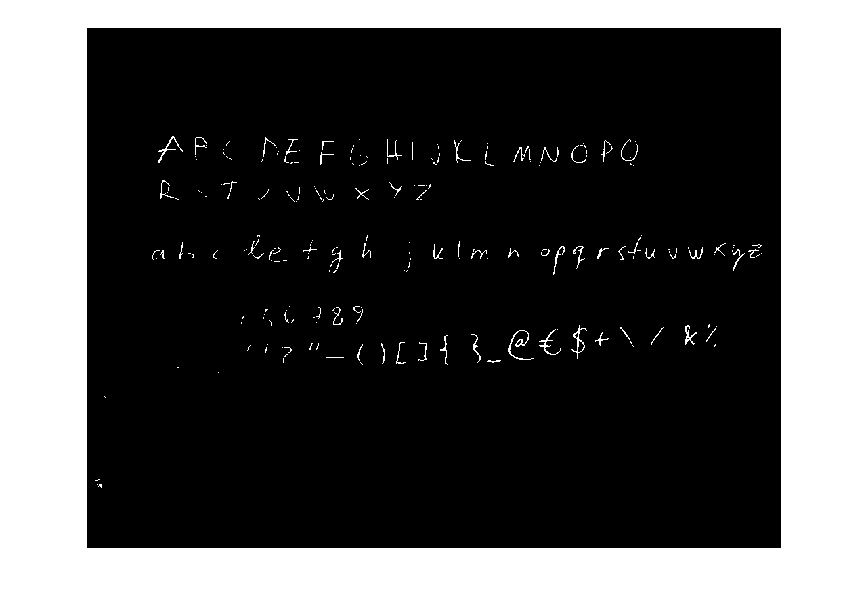 A B C D E F G H I J K L M N O P Q
R T U V W X Y Z
a b c d e f g h j k l m n o p q r s t u v w x y z
5 6 7 8 9
' ' ? " _ ( ) [ ] { } _ @ € $ + \ / & %